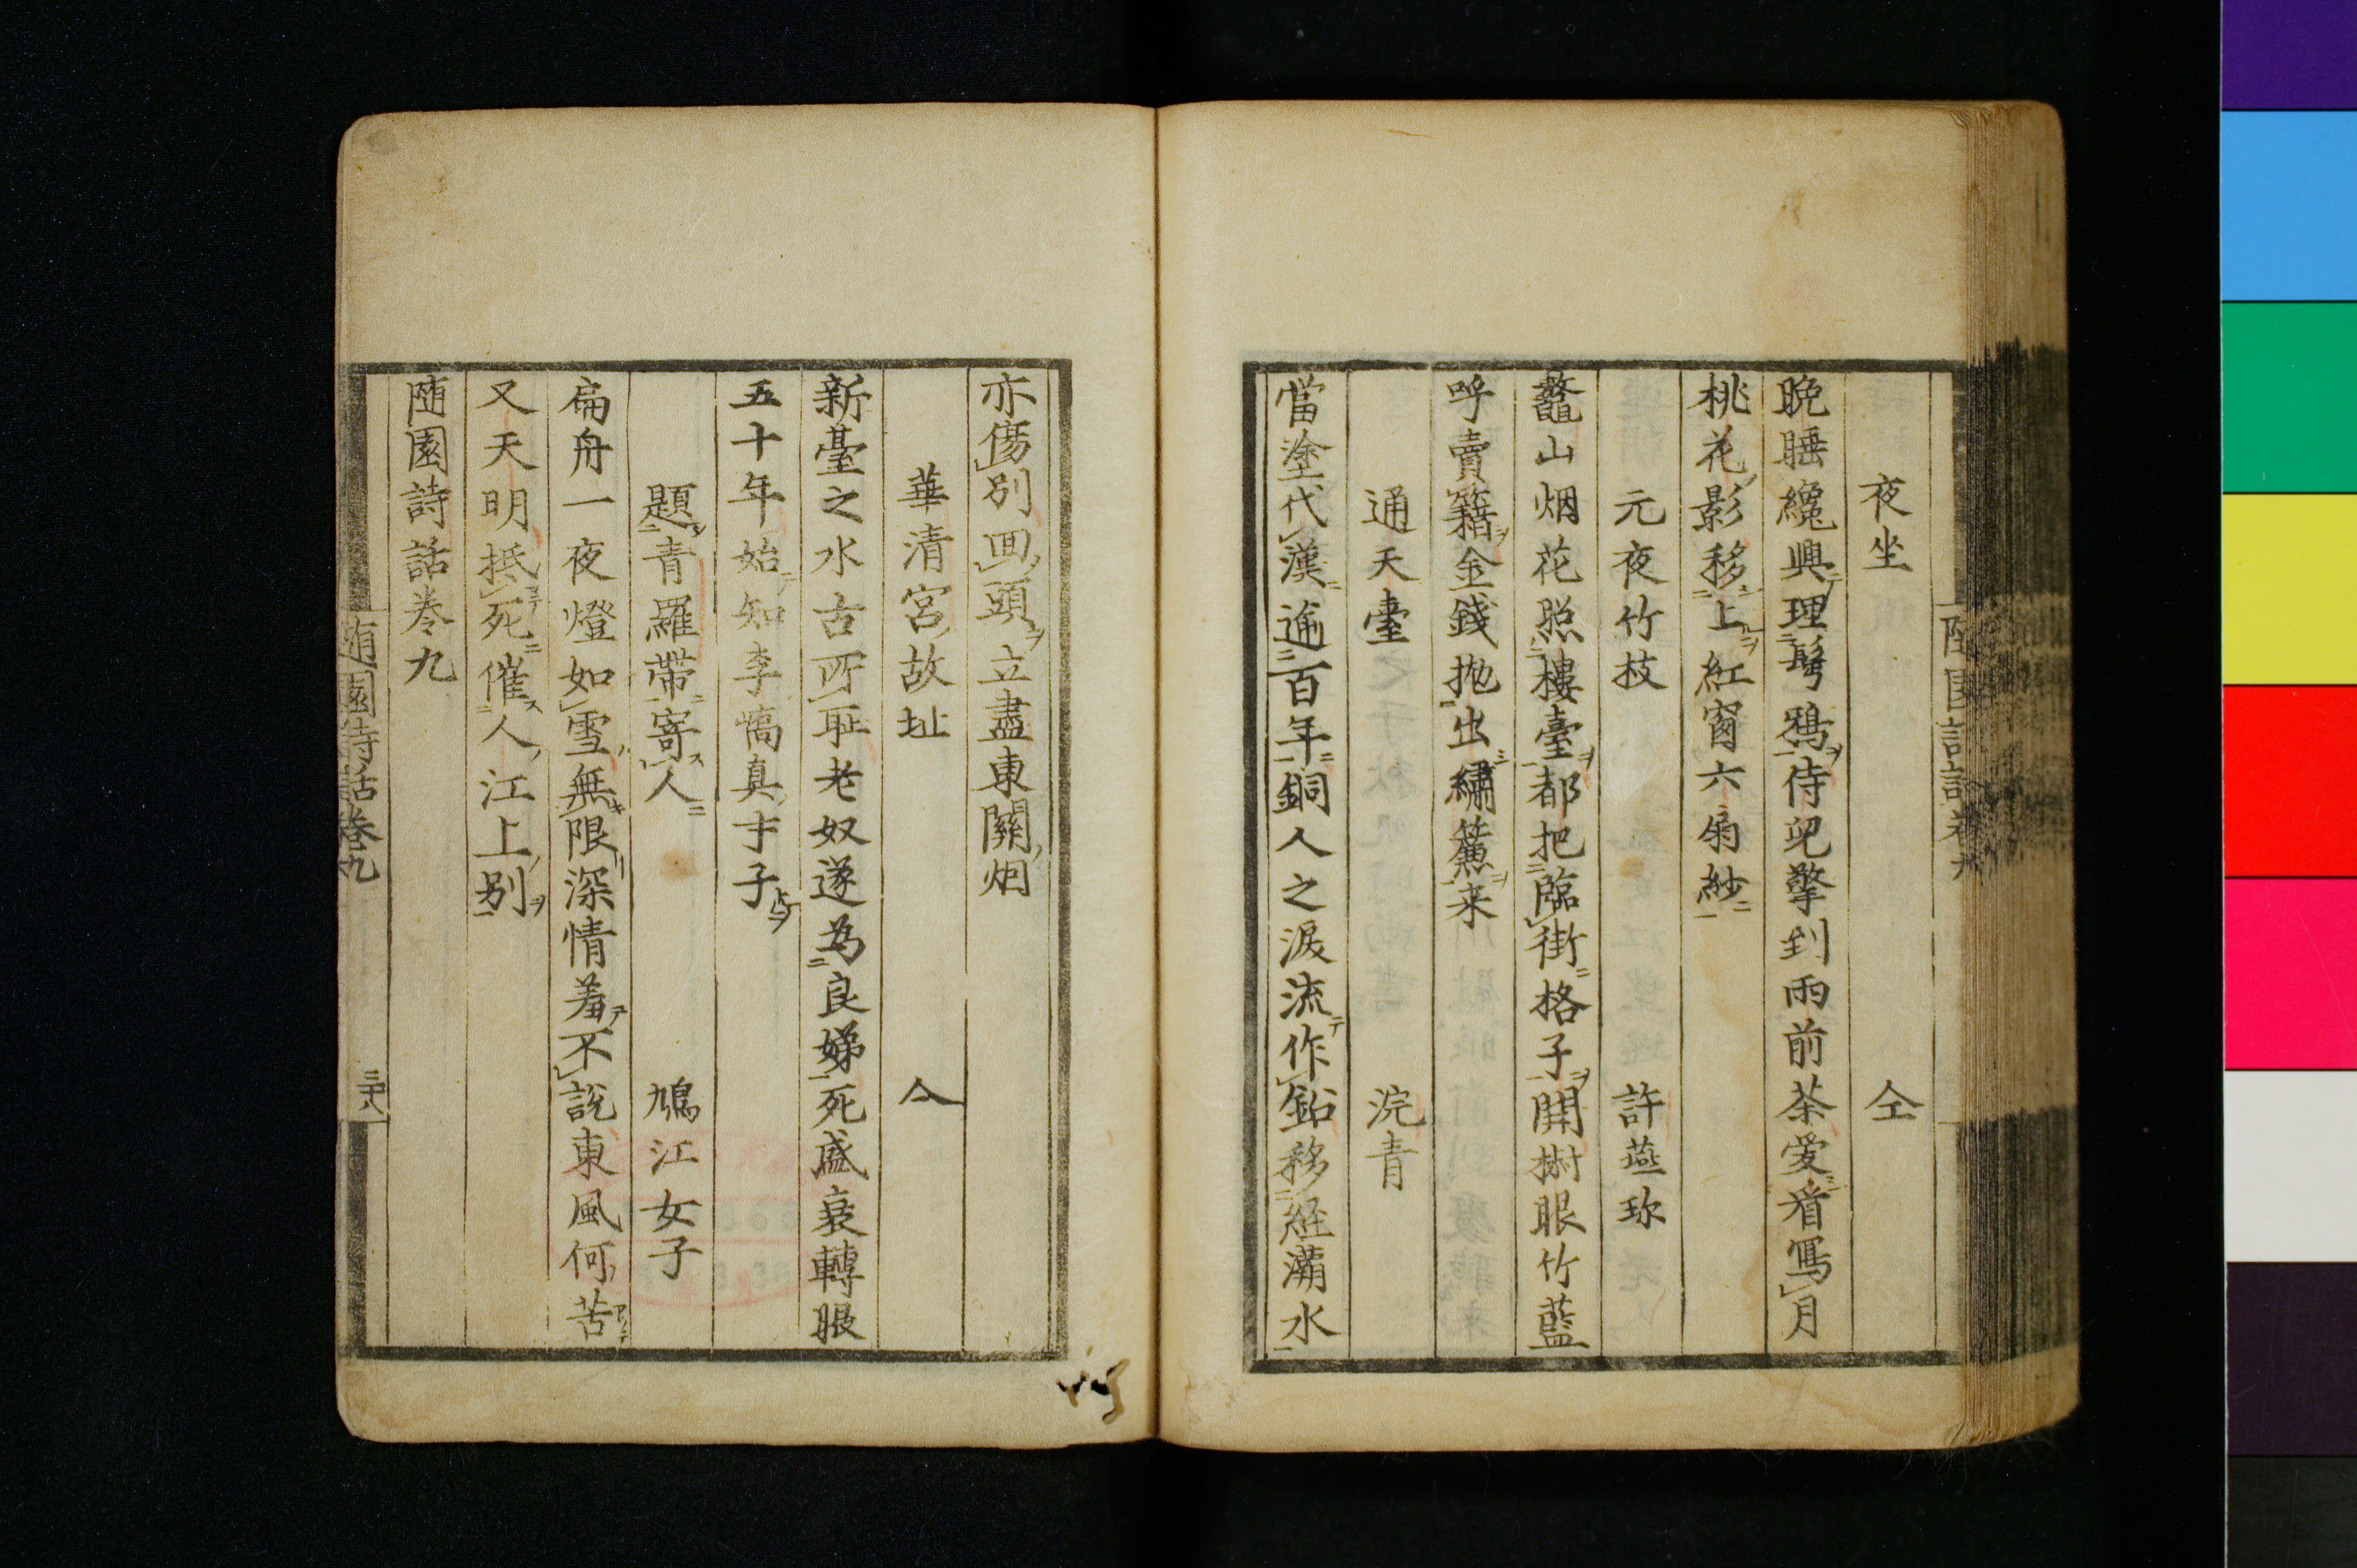 夜坐 仝
晩睡纔興理髩鴉侍児擎到雨前茶愛看写月
桃花影移上紅窗六扇紗
元夜竹枝 許燕珍
鼇山烟花照樓臺都把臨街格子開樹眼竹藍
呼賣籍金錢抛出繡簾来
通天臺 浣青
當塗代漢逾百年銅人之淚流作鉛移経灞水
亦傷別囬頭立盡東關烟
華清宮故址 仝
新臺之水古所耻老奴遂為良娣死盛衰轉眼
五十年始知李憰真才子
題青羅帶寄人 鳩江女子
扁舟一夜燈如雪無限深情羞不說東風何苦
又天明抵死催人江上別
随園詩話巻九
随園詩話巻九 三十八